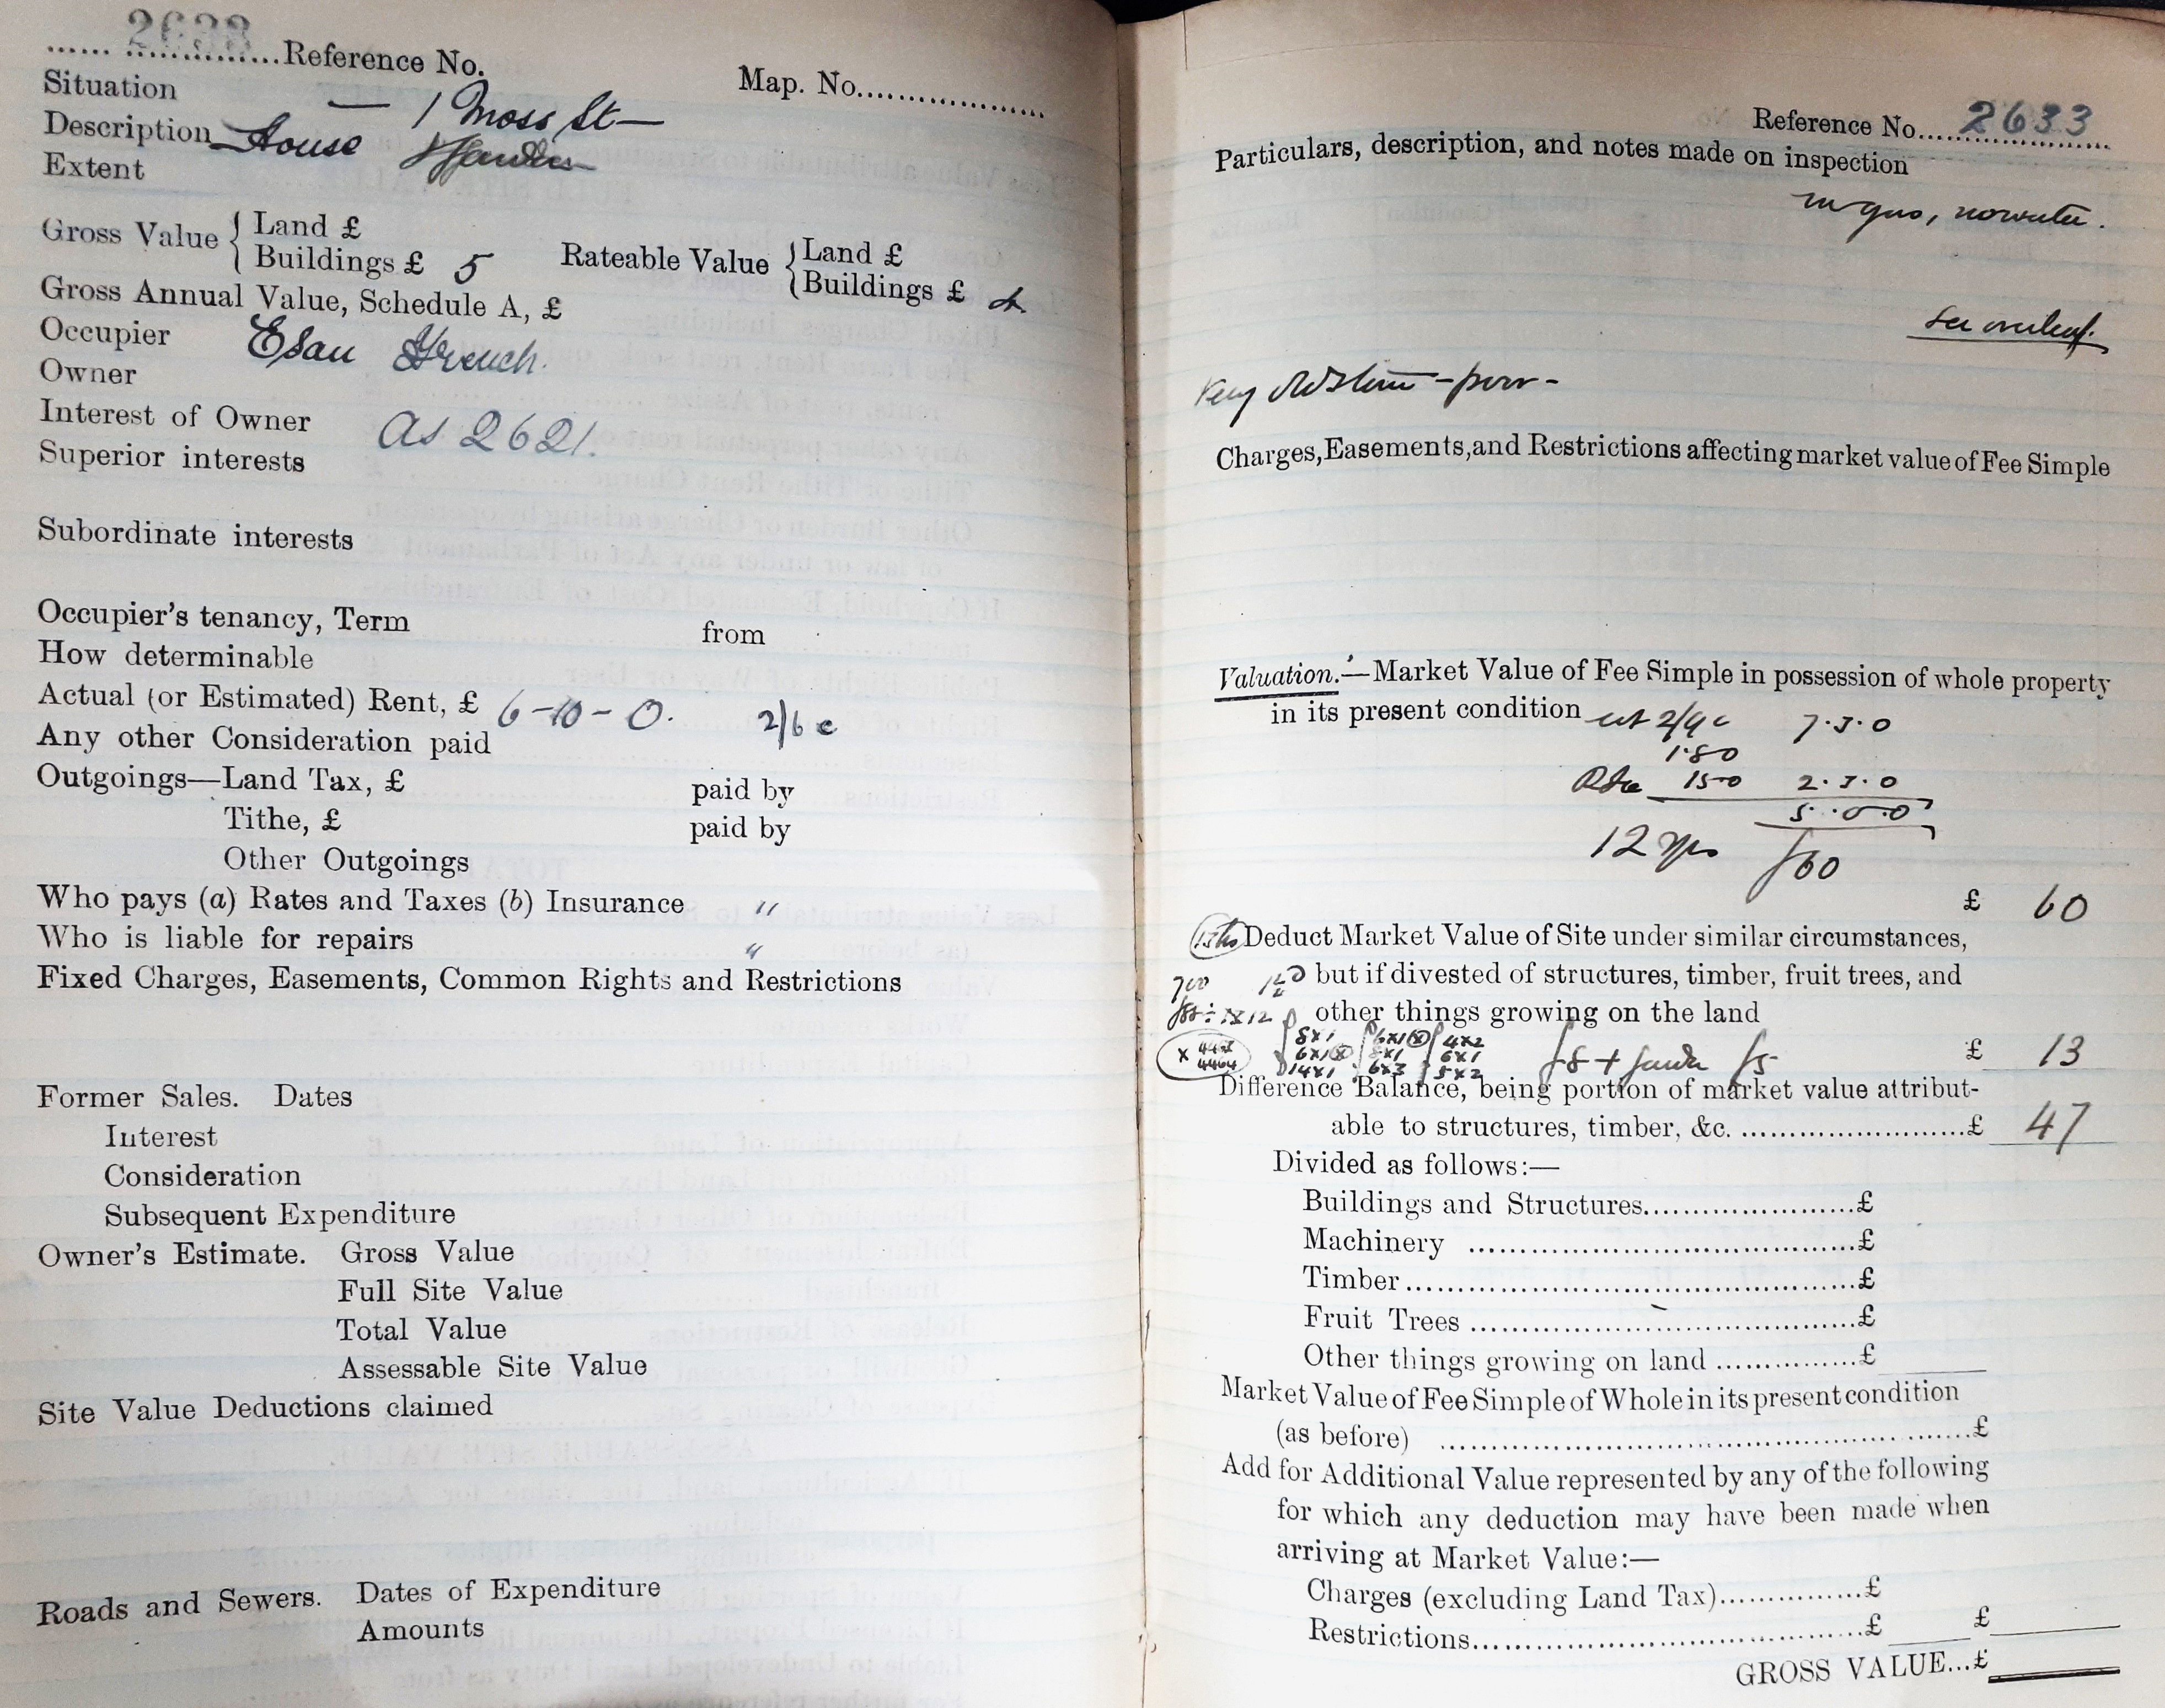 2633
...... ..............Reference No.
Map. No....................
Situation — 1 Moss St —
Description House & Garden
Extent
Gross Value { Land £
Buildings £ 5
Rateable Value { Land £
Buildings £ 4
Gross Annual Value, Schedule A, £
Occupier Esau French.
Owner
Interest of Owner As 2621.
Superior interests
Subordinate interests
Occupier's tenancy, Term from
How determinable
Actual (or Estimated) Rent, £ 6-10-0. 2/6
Any other Consideration paid
Outgoings—Land Tax, £ paid by
Tithe, £ paid by
Other Outgoings
Who pays (a) Rates and Taxes (b) Insurance "
Who is liable for repairs "
Fixed Charges, Easements, Common Rights and Restrictions
Former Sales. Dates
Interest
Consideration
Subsequent Expenditure
Owner's Estimate. Gross Value
Full Site Value
Total Value
Assessable Site Value
Site Value Deductions claimed
Roads and Sewers. Dates of Expenditure
Amounts
Reference No. 2633
Particulars, description, and notes made on inspection
no gas, no water.
See overleaf.
Very old stone - poor -
Charges, Easements, and Restrictions affecting market value of Fee Simple
Valuation.—Market Value of Fee Simple in possession of whole property
in its present condition at 2/9 7.3.0
1.8.0
15.0 2.3.0
5.0.0
12 yrs £60
£ 60
Deduct Market Value of Site under similar circumstances,
but if divested of structures, timber, fruit trees, and
other things growing on the land
8x1 6x1 4x2
6x1 8x1 6x1
14x1 6x3 5x2
£8 + garden £5
£ 13
Difference Balance, being portion of market value attribut-
able to structures, timber, &c. ........................£ 47
Divided as follows:—
Buildings and Structures......................£
Machinery .......................................£
Timber.............................................£
Fruit Trees ......................................£
Other things growing on land ..............£
Market Value of Fee Simple of Whole in its present condition
(as before) .....................................................£
Add for Additional Value represented by any of the following
for which any deduction may have been made when
arriving at Market Value:—
Charges (excluding Land Tax)...............£
Restrictions.........................................£ £
GROSS VALUE...£